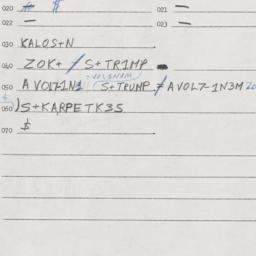 020 # $ 021 —
022 — 023 —
030 KALOS+N
040 ZOK+ ≠ S+TR1MP
VOL3NOM
050 A VOL7-1N1 (S+TRUMP ≠ A VOL7-1N3M
060 )S+KARPETK3S
070 $